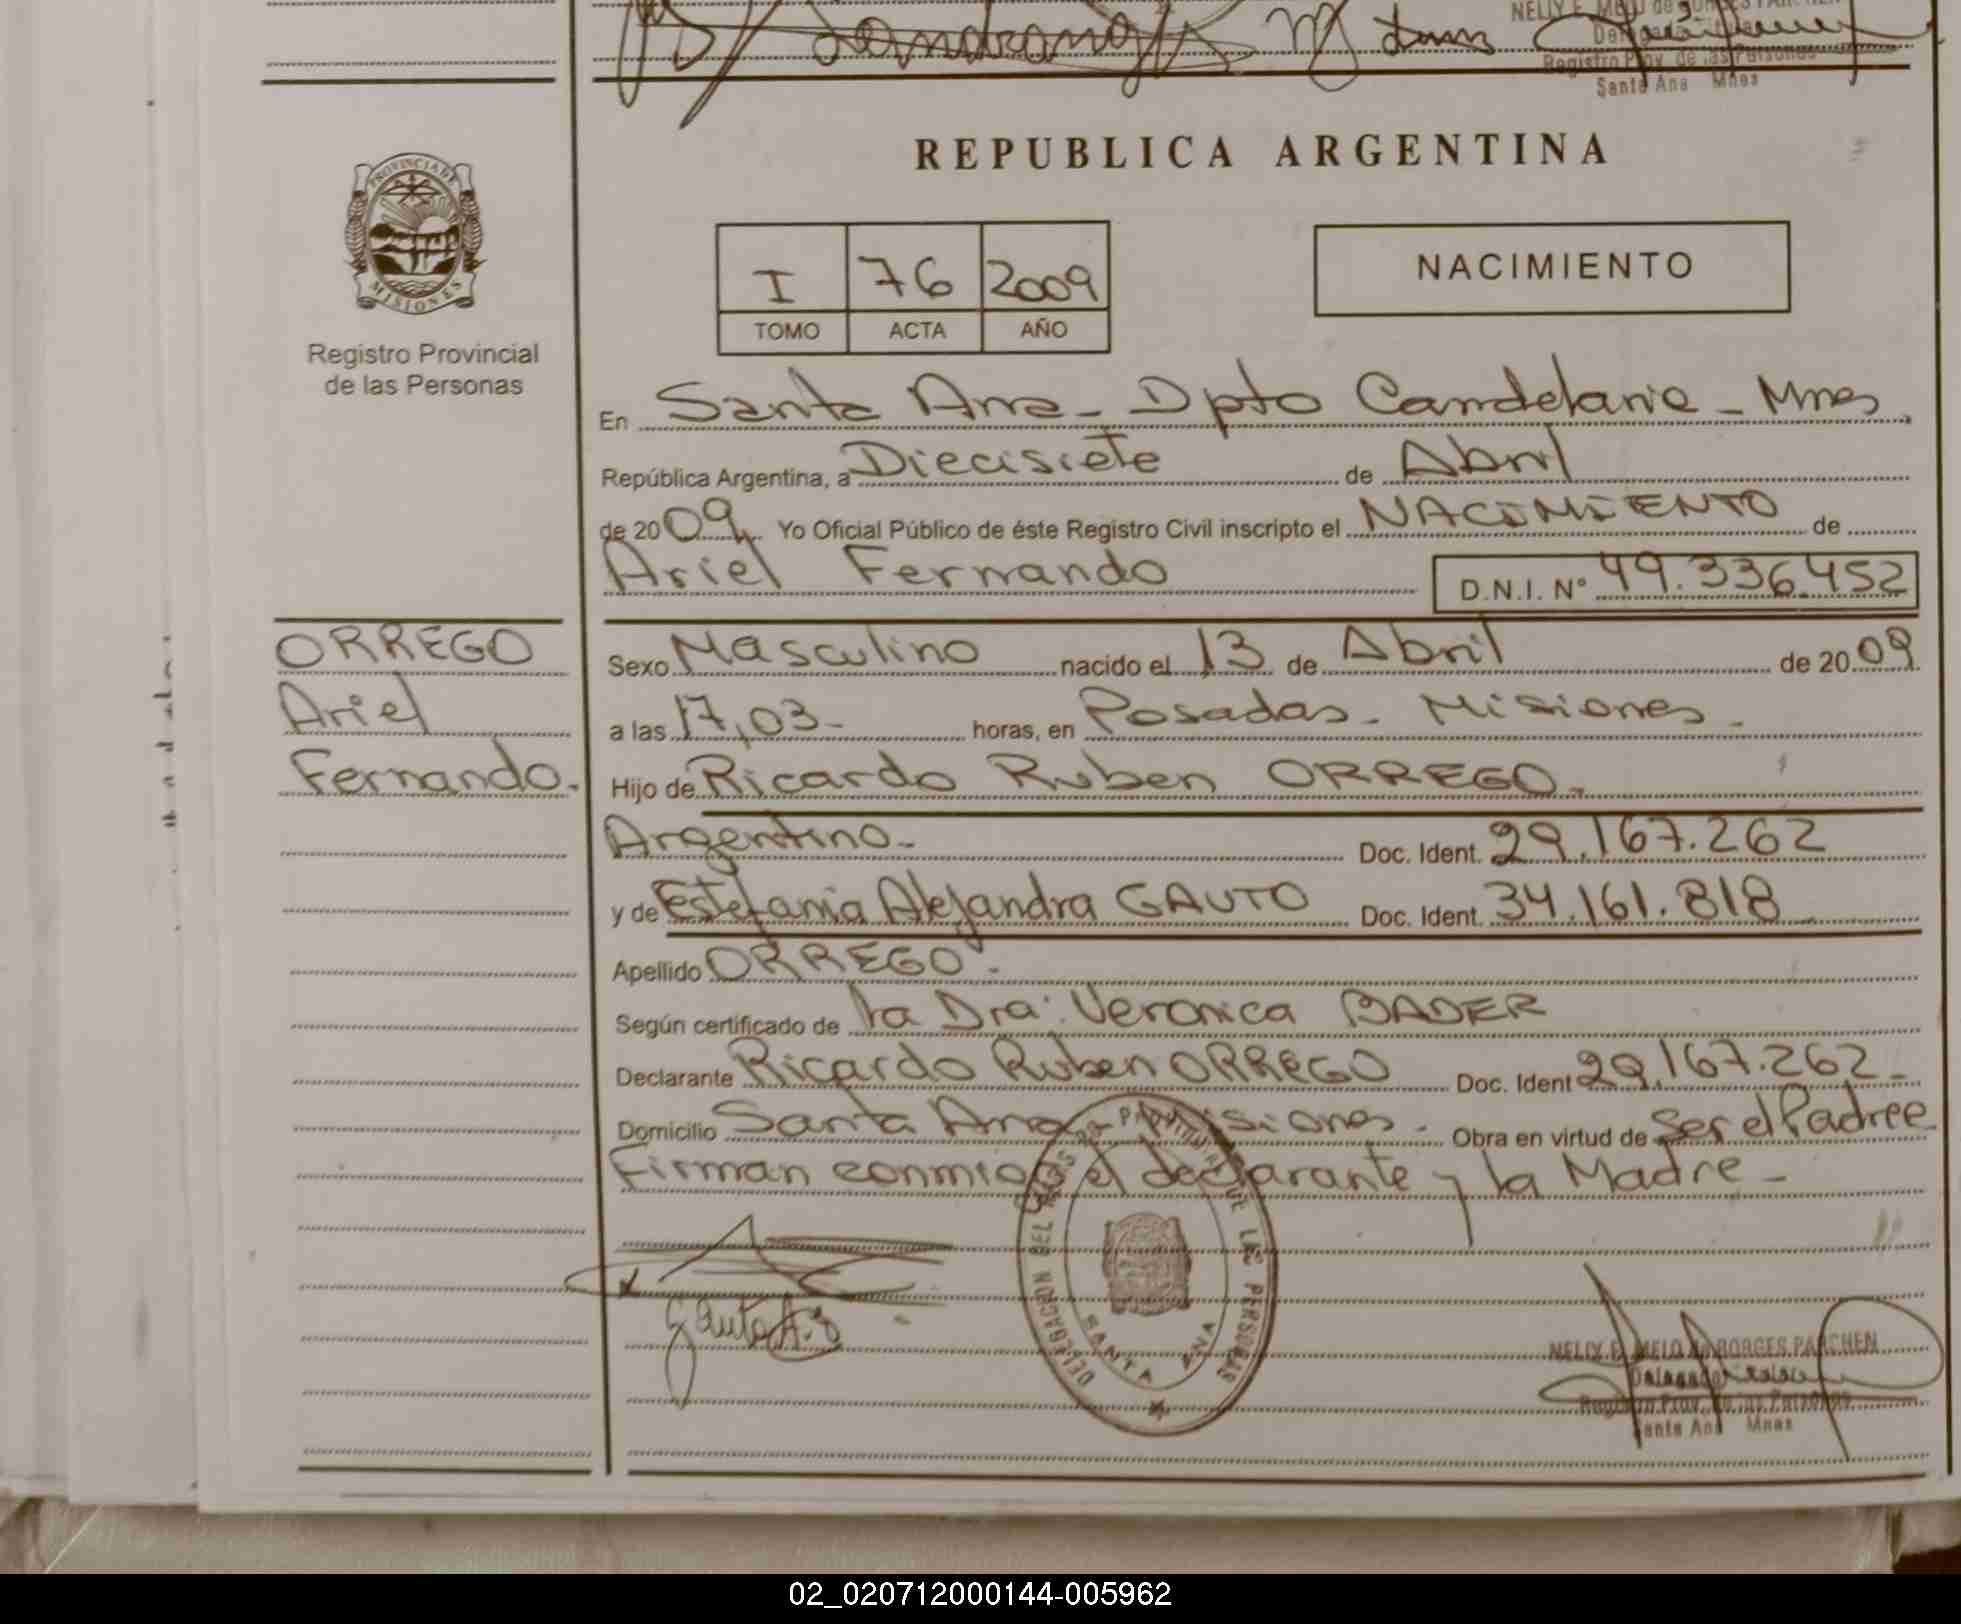 NELLY E. MELO de BORGES PARCHEN
Registro Prov. de las Personas
Santa Ana Mnes
REPUBLICA ARGENTINA
PROVINCIA DE MISIONES
Registro Provincial
de las Personas
I 76 2009
TOMO ACTA AÑO
NACIMIENTO
En Santa Ana - Dpto Candelaria - Mnes
República Argentina, a Diecisiete de Abril
de 2009 Yo Oficial Público de éste Registro Civil inscripto el NACIMIENTO de
Ariel Fernando D.N.I. N° 49.336.452
ORREGO
Ariel
Fernando.
Sexo Masculino nacido el 13 de Abril de 2009
a las 17,03- horas, en Posadas - Misiones -
Hijo de Ricardo Ruben ORREGO -
Argentino - Doc. Ident. 29.167.262
y de Estefania Alejandra GAUTO Doc. Ident. 34.161.818
Apellido ORREGO -
Según certificado de la Dra: Veronica BADER
Declarante Ricardo Ruben ORREGO Doc. Ident 29.167.262 -
Domicilio Santa Ana Misiones - Obra en virtud de Ser el Padre e
Firman conmigo el declarante y la Madre -
DELEGACION DEL REGISTRO PROVINCIAL DE LAS PERSONAS
SANTA ANA
Gauto A. E
NELLY E. MELO de BORGES PARCHEN
Delegado Titular
Registro Prov. de las Personas
Santa Ana Mnes
02_020712000144-005962